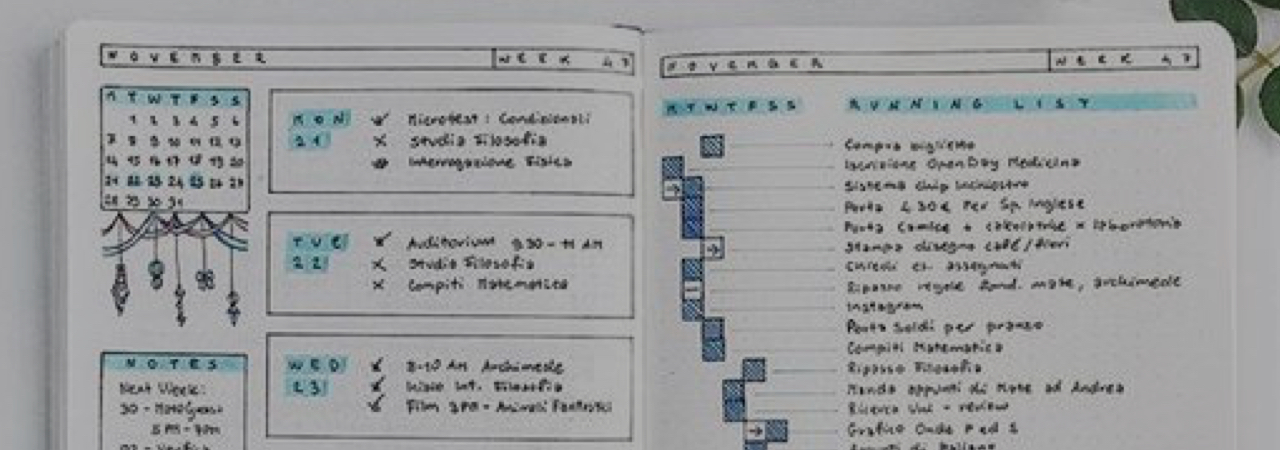 NOVEMBER WEEK 47
M T W T F S S
1 2 3 4 5 6
7 8 9 10 11 12 13
14 15 16 17 18 19 20
21 22 23 24 25 26 27
28 29 30 31
NOTES
Next Week:
30 -
5 PM - 7 PM
MON 21
Microtest: Condizionali
Studia Filosofia
Interrogazione Fisica
TUE 22
Auditorium 9.30 - 11 AM
Studia Filosofia
Compiti Matematica
WED 23
8-10 AM Archimede
Inizio Int. Filosofia
Film 3PM - Animali Fantastici
NOVEMBER WEEK 47
M T W T F S S RUNNING LIST
Compra biglietto
Iscrizione Open Day Medicina
Sistema chip inchiostro
Porta 4,30€ Per Sp. Inglese
Porta Camice + calcolatrice x laboratorio
Stampa disegno café/fiori
Chiedi es. assegnati
Ripasso regole fond. mate, archimede
Instagram
Porta soldi per pranzo
Compiti Matematica
Ripasso Filosofia
Manda appunti di Mate ad Andrea
Ricerca - review
Grafico Onde P ed S
Appunti di Italiano